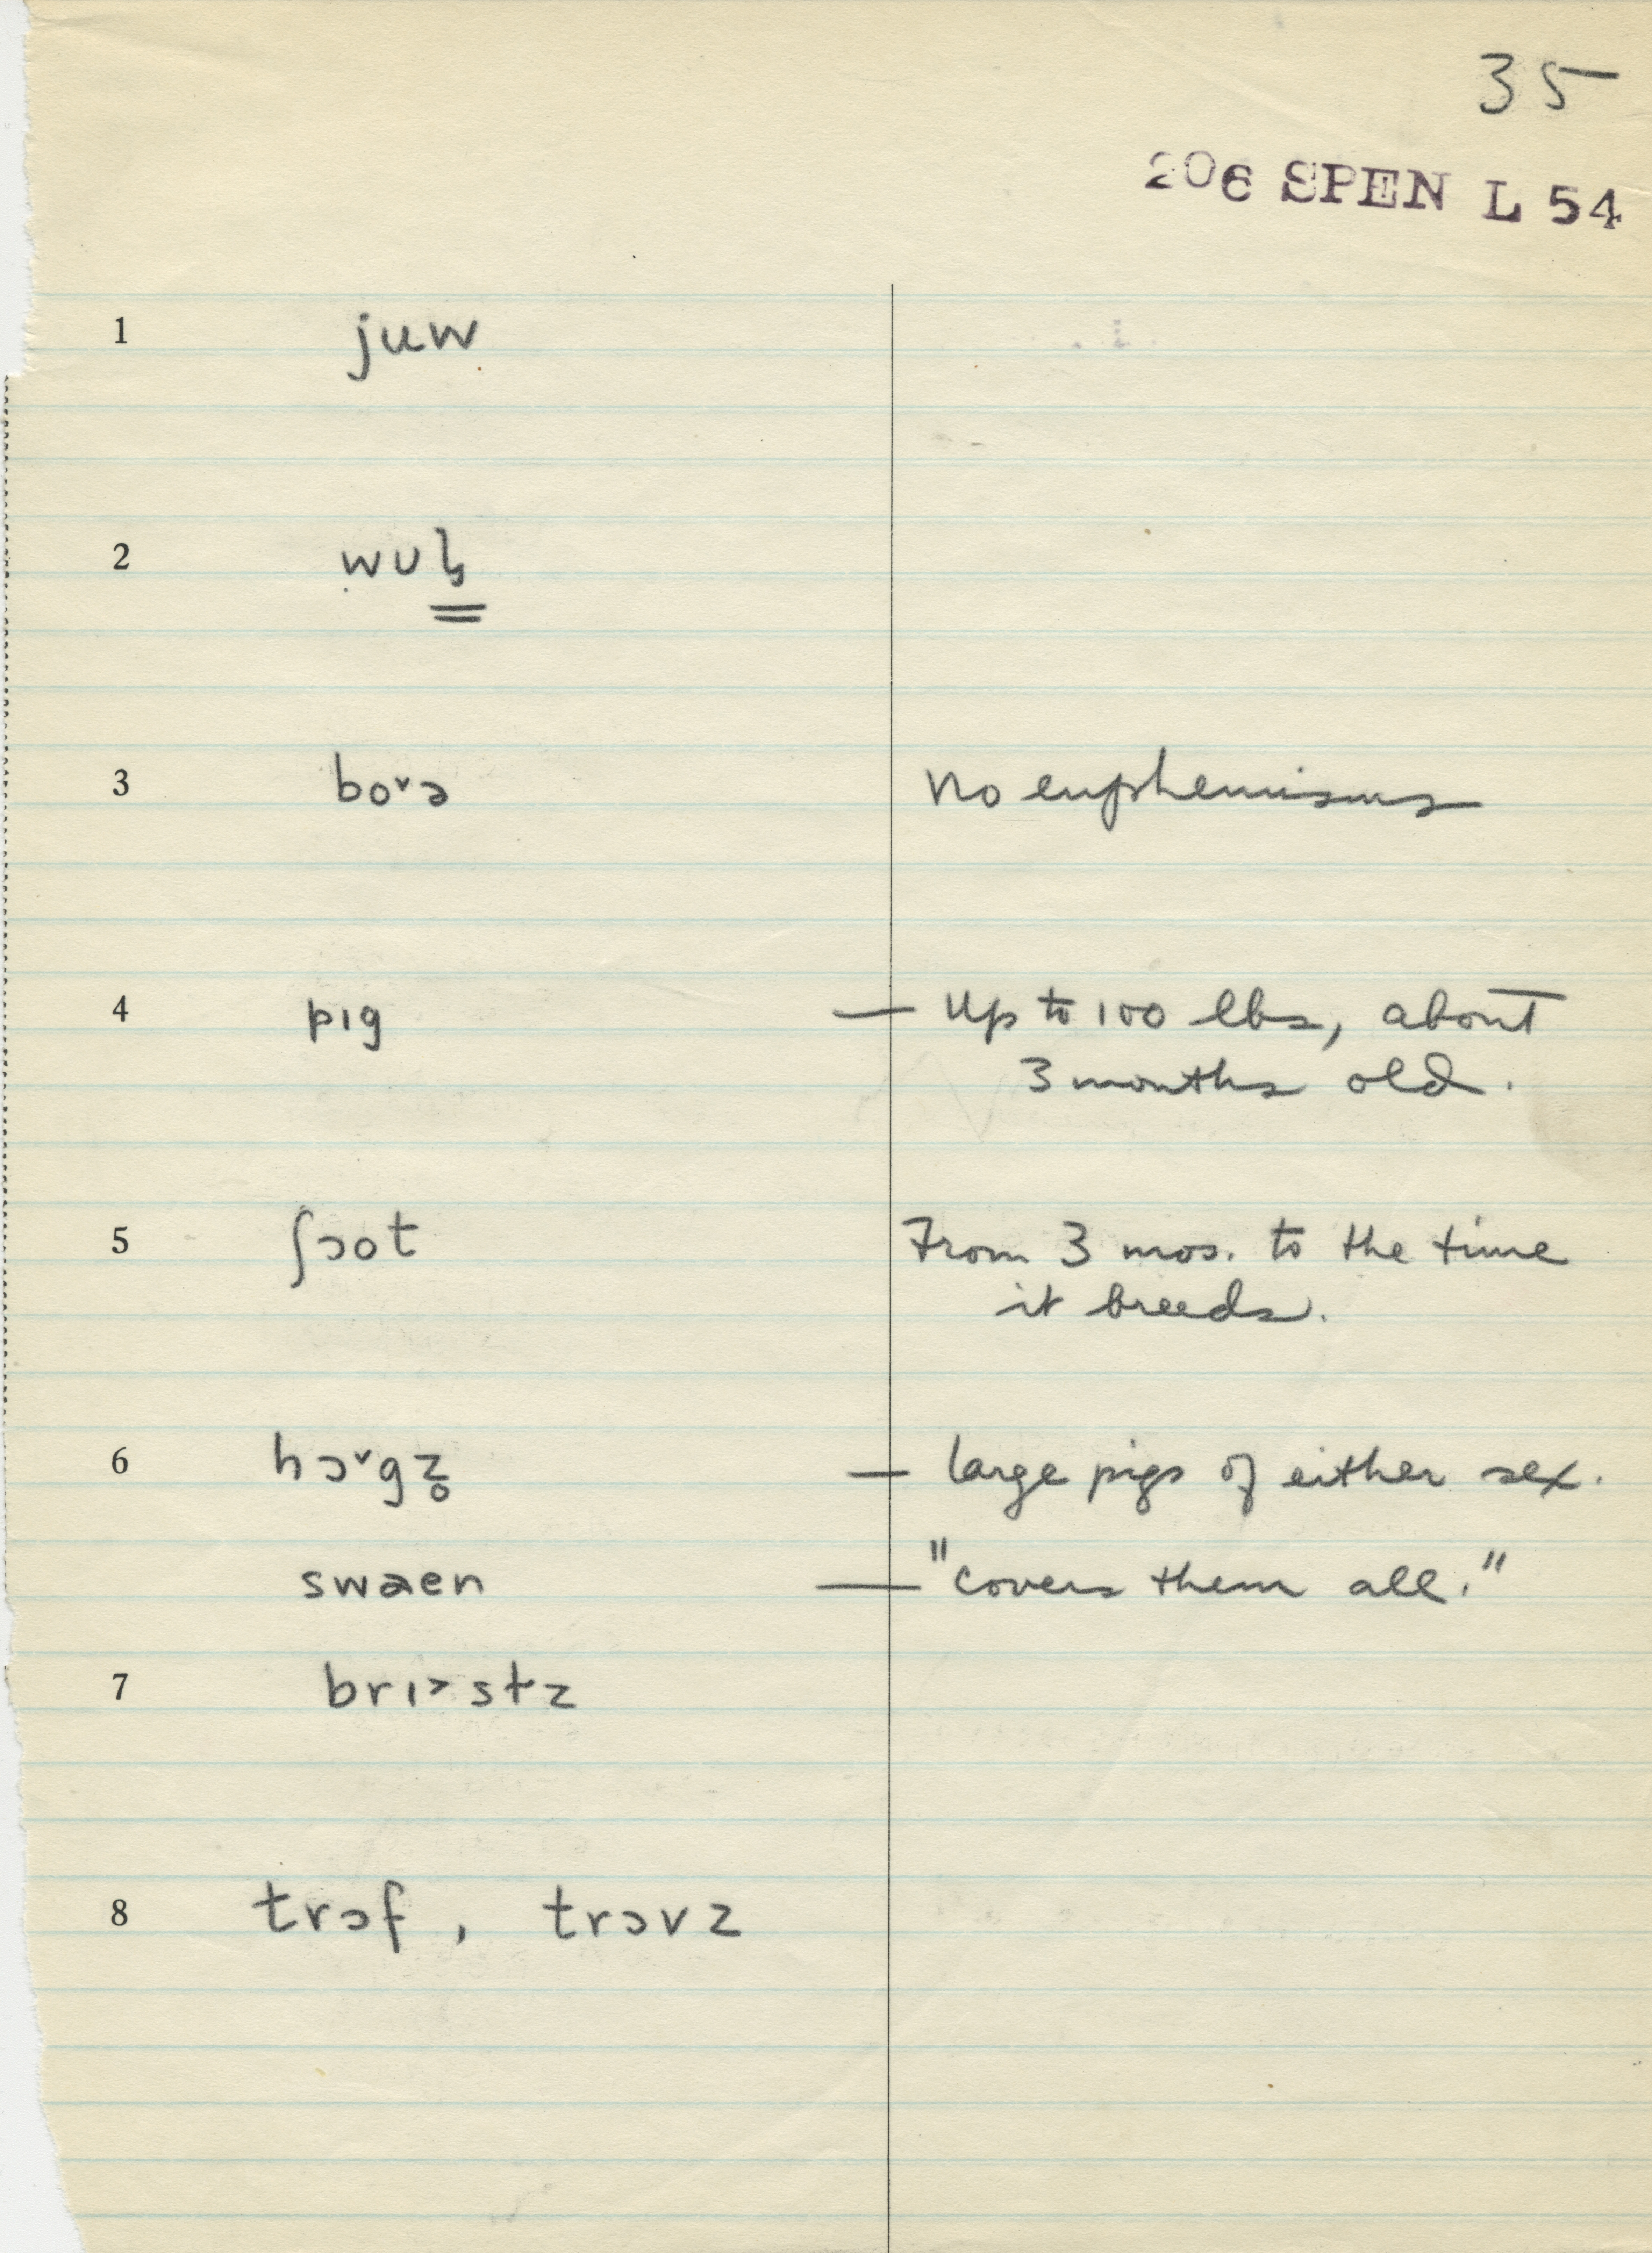 35
206 SPEN L 54
1 juw
2
3 boᵛə no euphemisms
4 pɪg — Up to 100 lbs, about
3 months old.
5 ʃɔot From 3 mos. to the time
it breeds.
6 hɔᵛgz̥ — large pigs of either sex.
swaen — "covers them all."
7 brɪ˃stz
8 trɔf, trɔvz